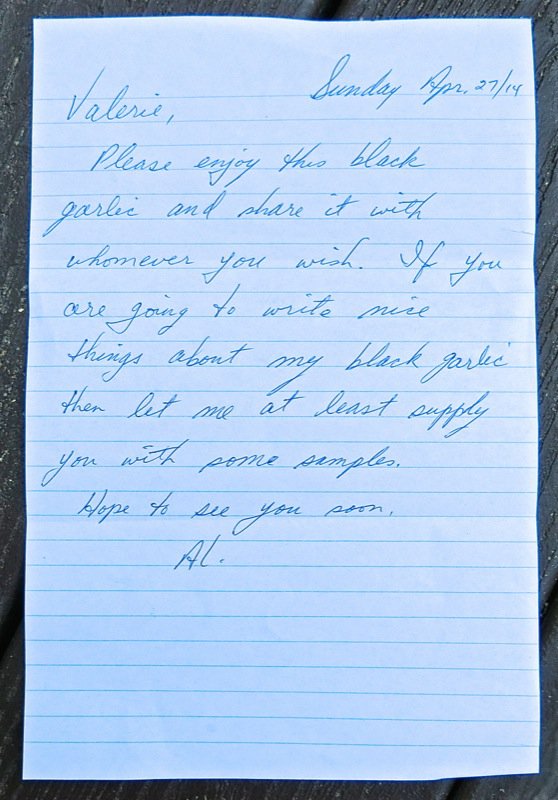 Sunday Apr. 27/14
Valerie,
Please enjoy this black
garlic and share it with
whomever you wish. If you
are going to write nice
things about my black garlic
then let me at least supply
you with some samples.
Hope to see you soon.
Al.